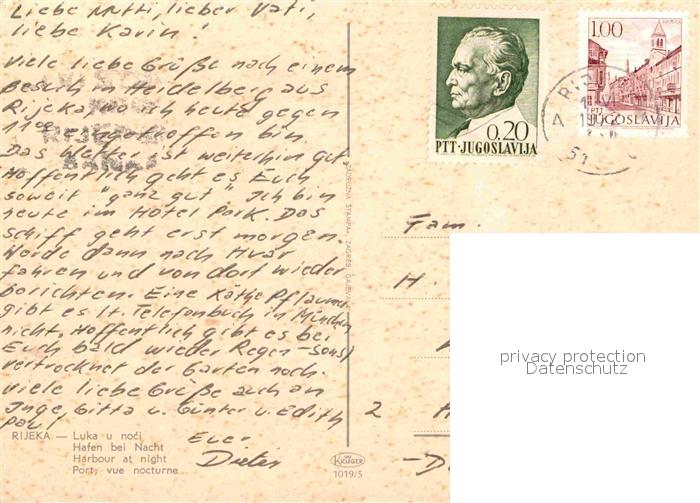 Liebe Mutti, lieber Vati,
liebe Karin!
Viele liebe Grüße nach einem
Besuch in Heidelberg aus
Rijeka, wo ich heute gegen
11 00 eingetroffen bin
Das Wetter ist weiterhin gut
Hoffentlich geht es Euch
soweit "ganz gut". Ich bin
heute im Hotel Park. Das
Schiff geht erst morgen.
Werde dann nach Hvar
fahren und von dort wieder
berichten. Eine Käthe Pflaume
gibt es lt. Telefonbuch in München
nicht. Hoffentlich gibt es bei
Euch bald wieder Regen - sonst
vertrocknet der Garten noch.
Viele liebe Grüße auch an
Inge, Gitta u. Günter u. Edith
Paul!
Euer
Dieter
RIJEKA — Luka u noći
Hafen bei Nacht
Harbour at night
Port, vue nocturne
KRÜGER
1019/5
0.20
PTT·JUGOSLAVIJA
1.00
PTT
JUGOSLAVIJA
51
Fam.
H.
2
privacy protection
Datenschutz